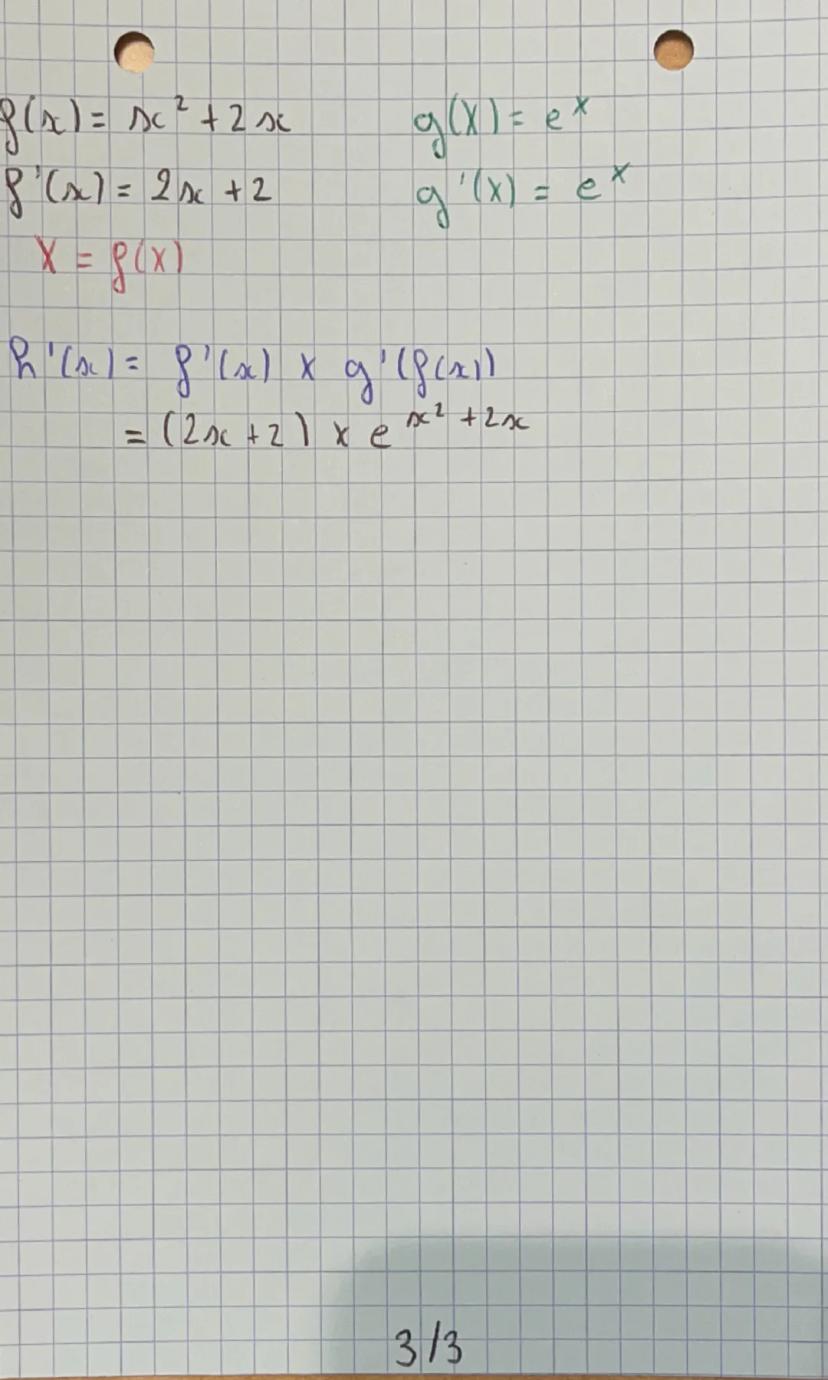 f(x) = x² + 2x
g(X) = eˣ
f'(x) = 2x + 2
g'(X) = eˣ
X = f(x)
h'(x) = f'(x) × g'(f(x))
= (2x + 2) × e^x² + 2x
3/3